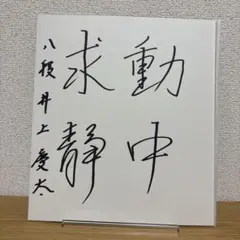 動中
求静
八段井上慶太